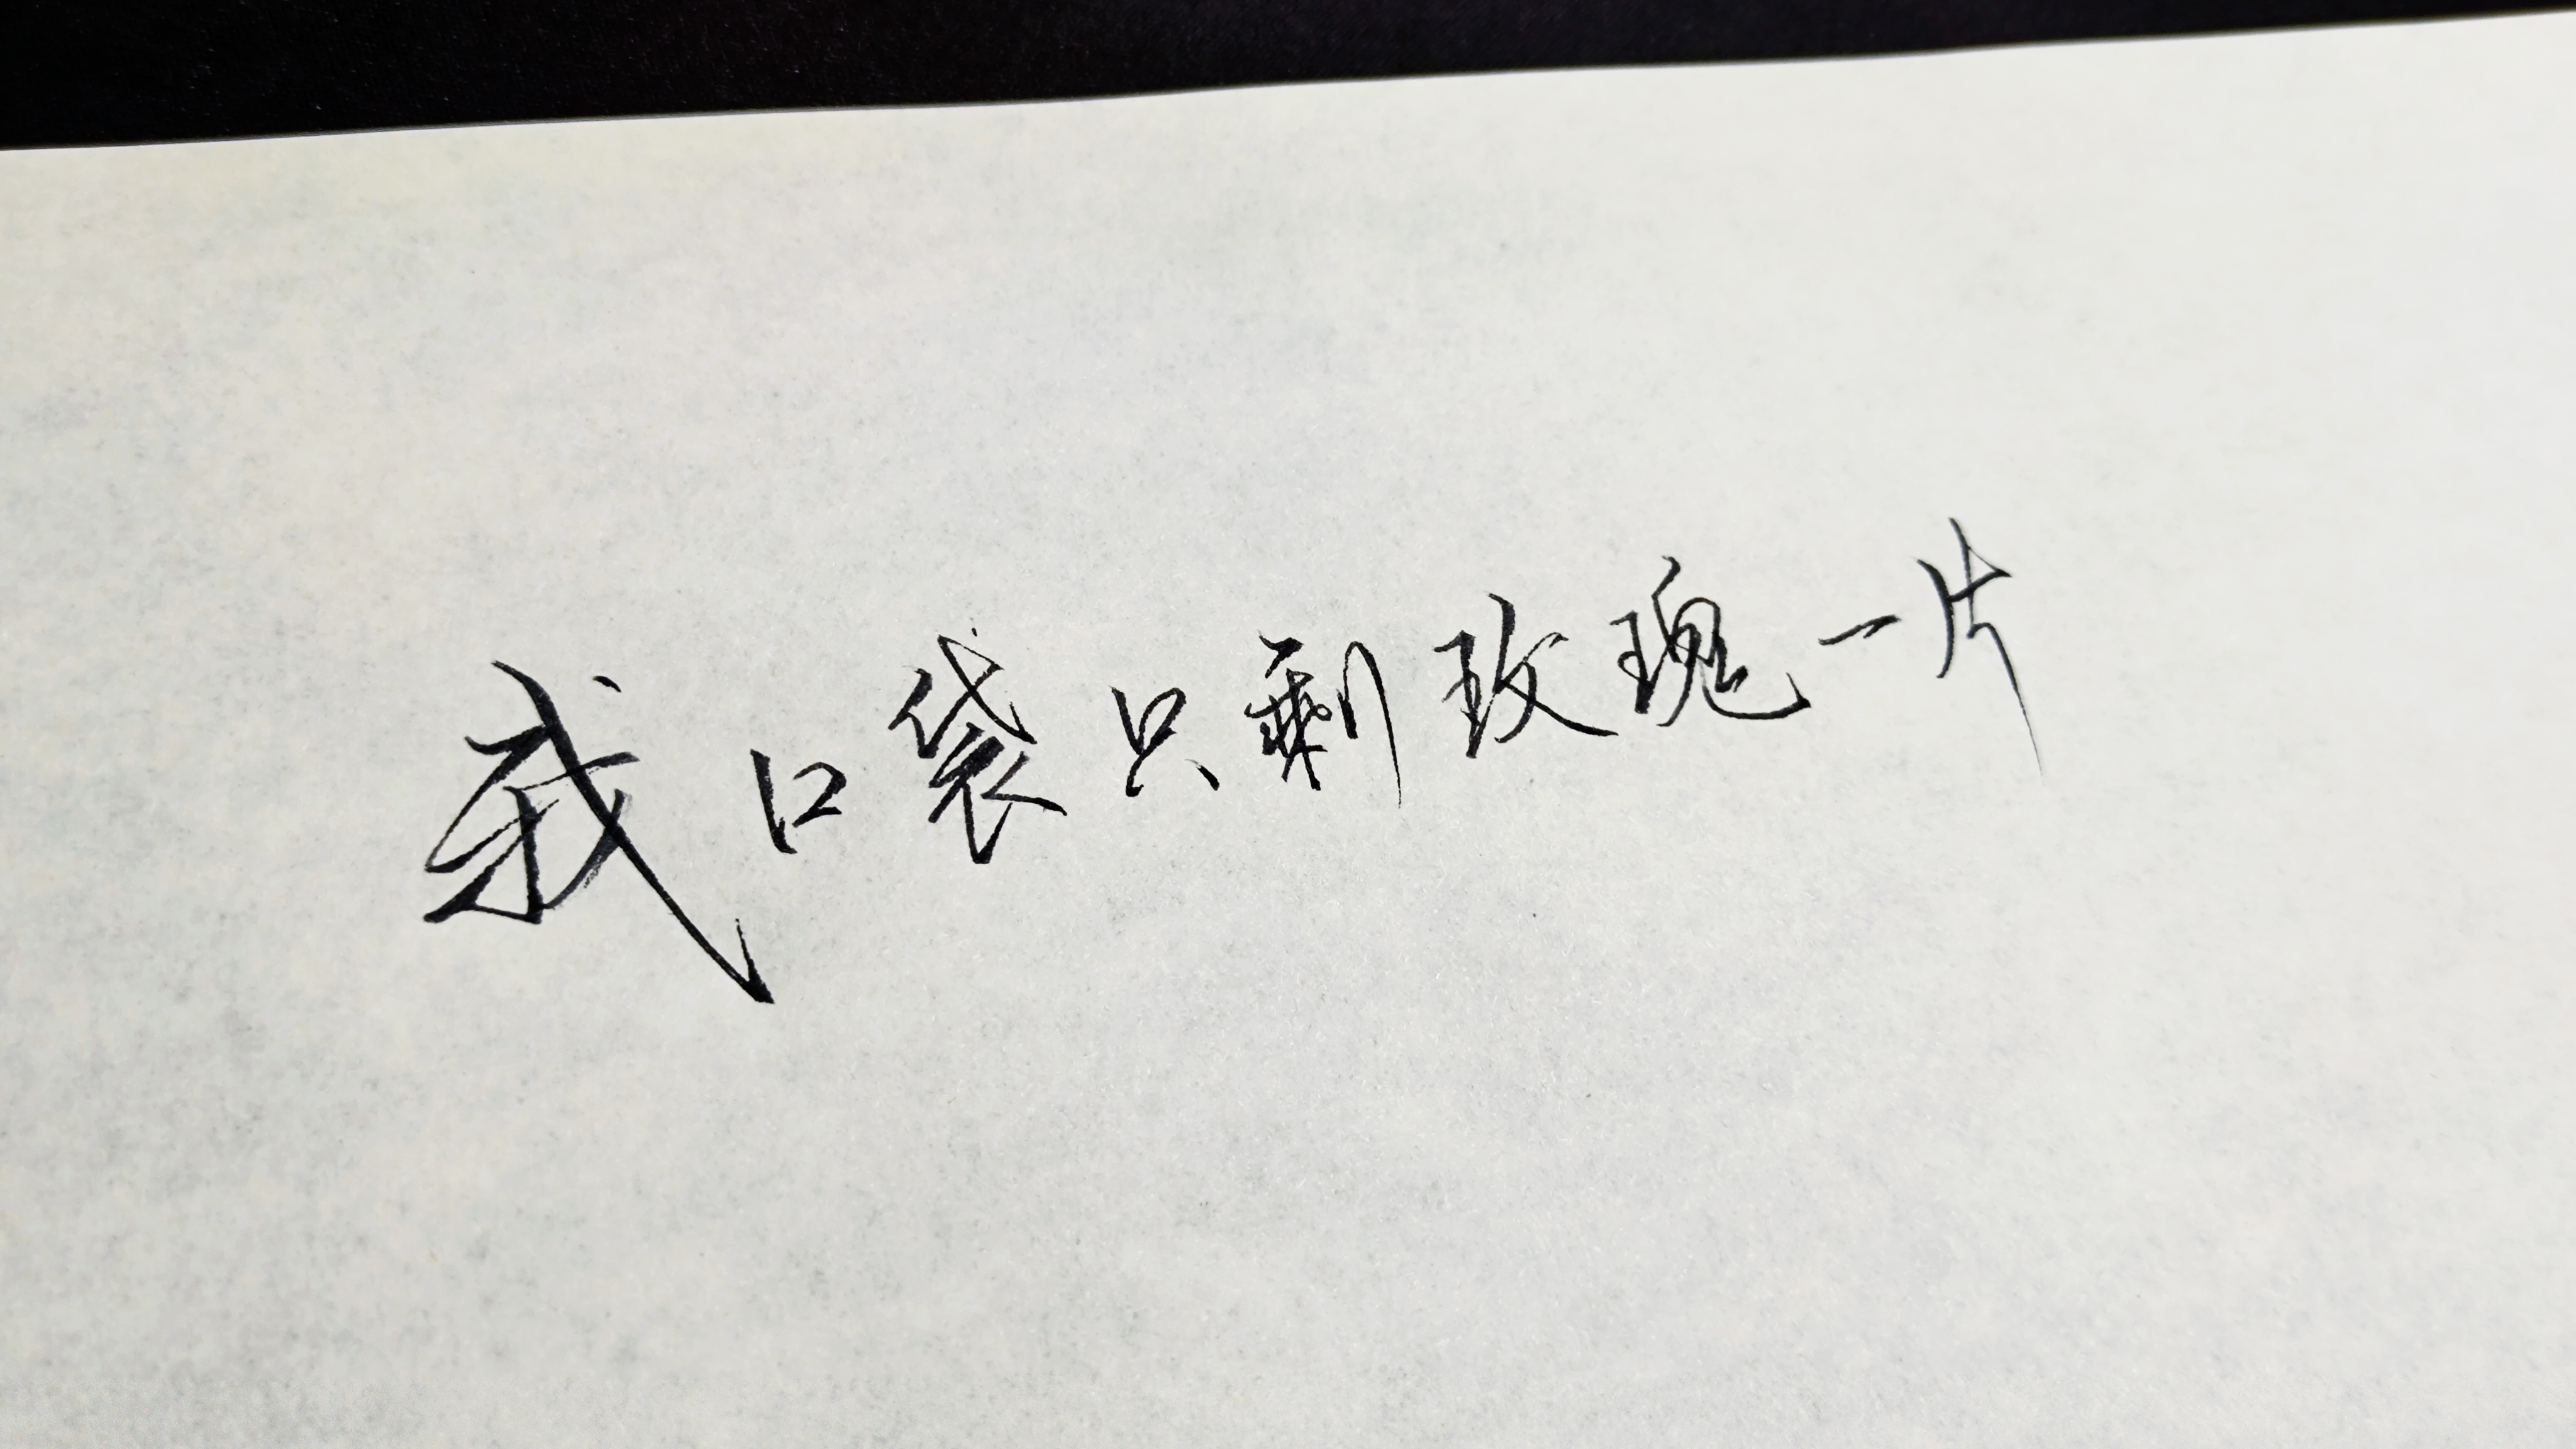 我口袋只剩玫瑰一片